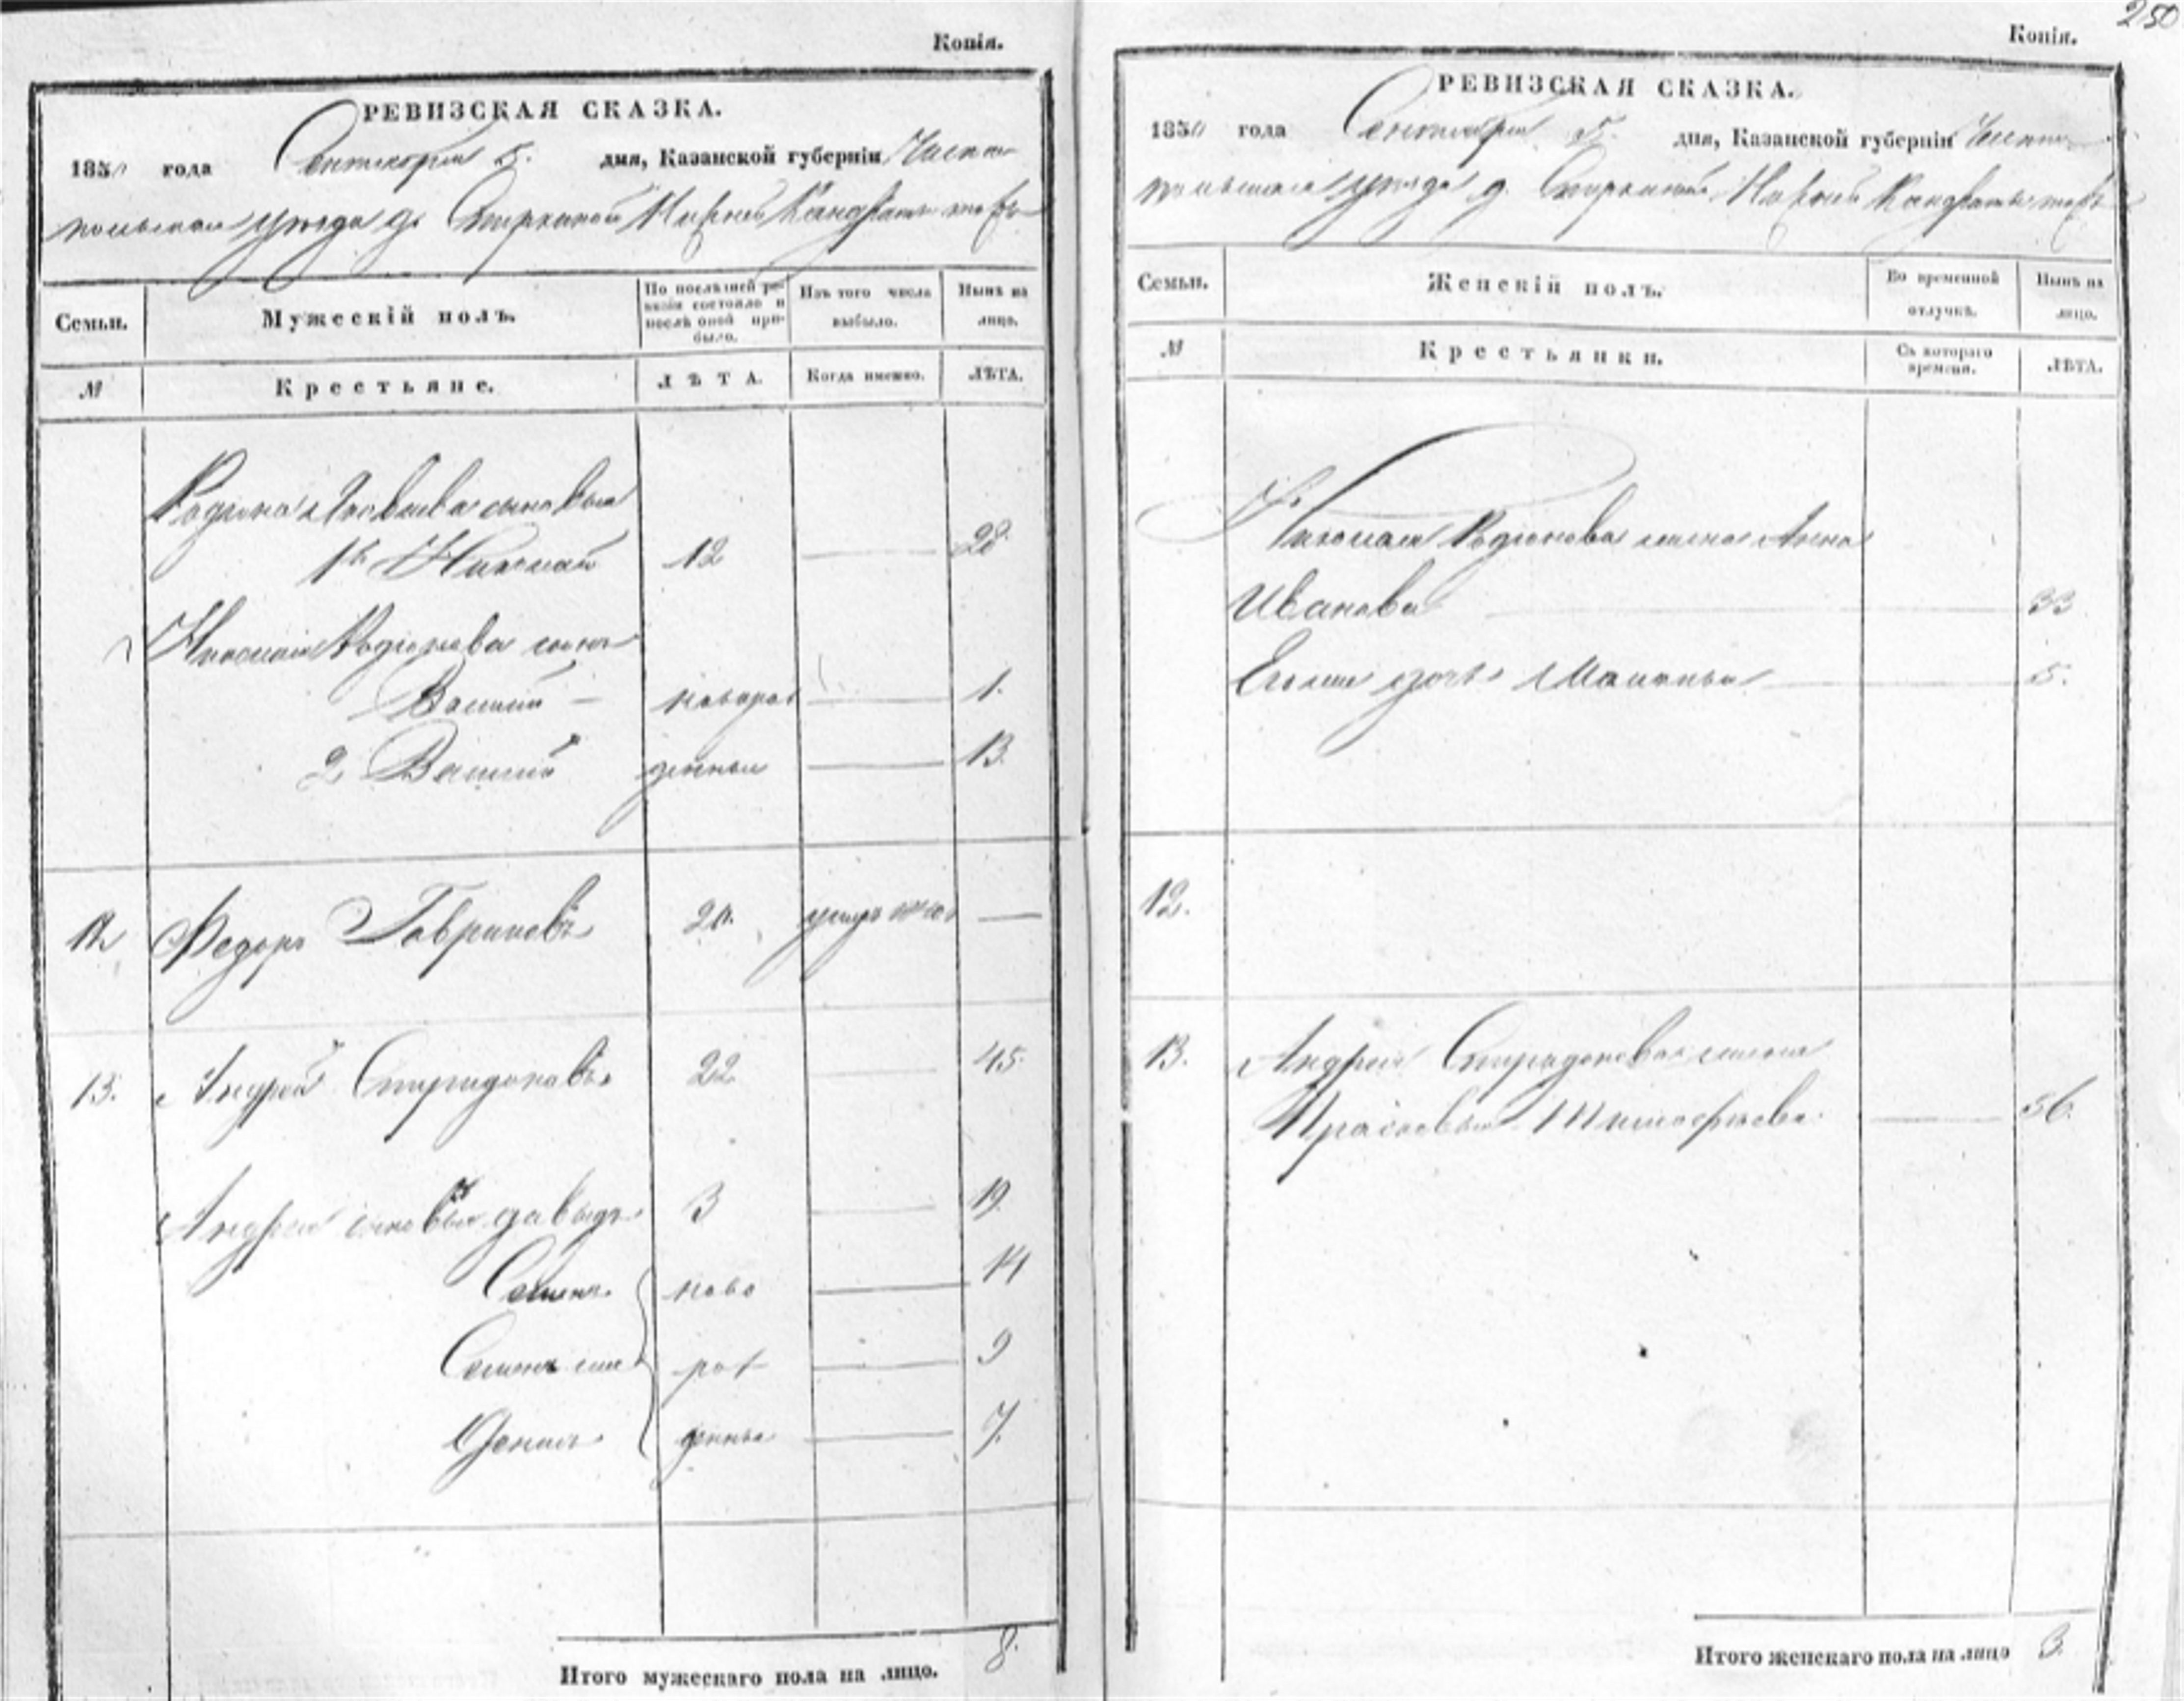 Копія.
РЕВИЗСКАЯ СКАЗКА.
1850 года Сентября 5. дня, Казанской губерніи Чисто
польскаго уѣзда д.
Семьи.
Мужескій полъ.
По послѣдней ре-
визіи состояло и
послѣ оной при-
было.
Изъ того числа
выбыло.
Нынѣ на
лицо.
№
Крестьяне.
ЛѢТА.
Когда именно.
ЛѢТА.
Родіона сыновья
1й Николай 12 — 28
Николая Родіонова сынъ
Василій — новорож — 1.
2 Василій денные — 13.
12. Федоръ Гавриловъ 20. —
13. Андрей Спиридоновъ 22 — 45.
Андрея сыновья Давыдъ 3 — 19.
Семенъ ново — 14
Семенъ рож — 9
Денисъ денные — 7.
Итого мужескаго пола на лицо. 8.
250
Копія.
РЕВИЗСКАЯ СКАЗКА.
1850 года Сентября 5. дня, Казанской губерніи Чисто
польскаго уѣзда д.
Семьи.
Женскій полъ.
Во временной
отлучкѣ.
Нынѣ на
лицо.
№
Крестьянки.
Съ котораго
времени.
ЛѢТА.
Николая Родіонова жена Анна
Иванова — 33
дочь Маланья — 5.
12.
13. Андрея Спиридонова жена
Прасковья Тимофѣева — 56.
Итого женскаго пола на лицо 3.